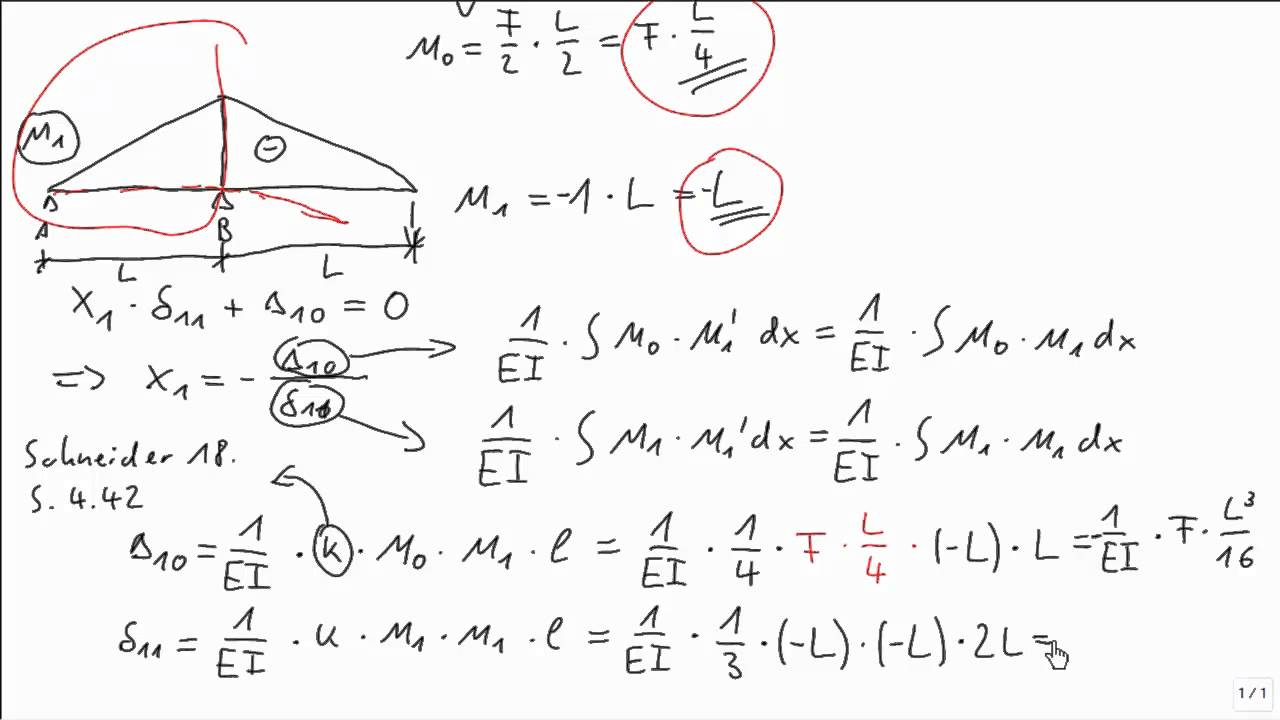 M₀ = F/2 · L/2 = F · L/4
M₁
⊖
M₁ = -1 · L = -L
A
B
L
L
X₁ · δ₁₁ + Δ₁₀ = 0
1/EI · ∫ M₀ · M₁' dx = 1/EI · ∫ M₀ · M₁ dx
=> X₁ = - Δ₁₀/δ₁₁
1/EI · ∫ M₁ · M₁' dx = 1/EI · ∫ M₁ · M₁ dx
Schneider 18.
S. 4.42
Δ₁₀ = 1/EI · k · M₀ · M₁ · l = 1/EI · 1/4 · F · L/4 · (-L) · L = -1/EI · F · L³/16
δ₁₁ = 1/EI · k · M₁ · M₁ · l = 1/EI · 1/3 · (-L) · (-L) · 2L =
1/1